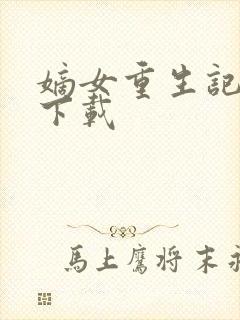 嫡女重生記
下載
馬上鷹将末